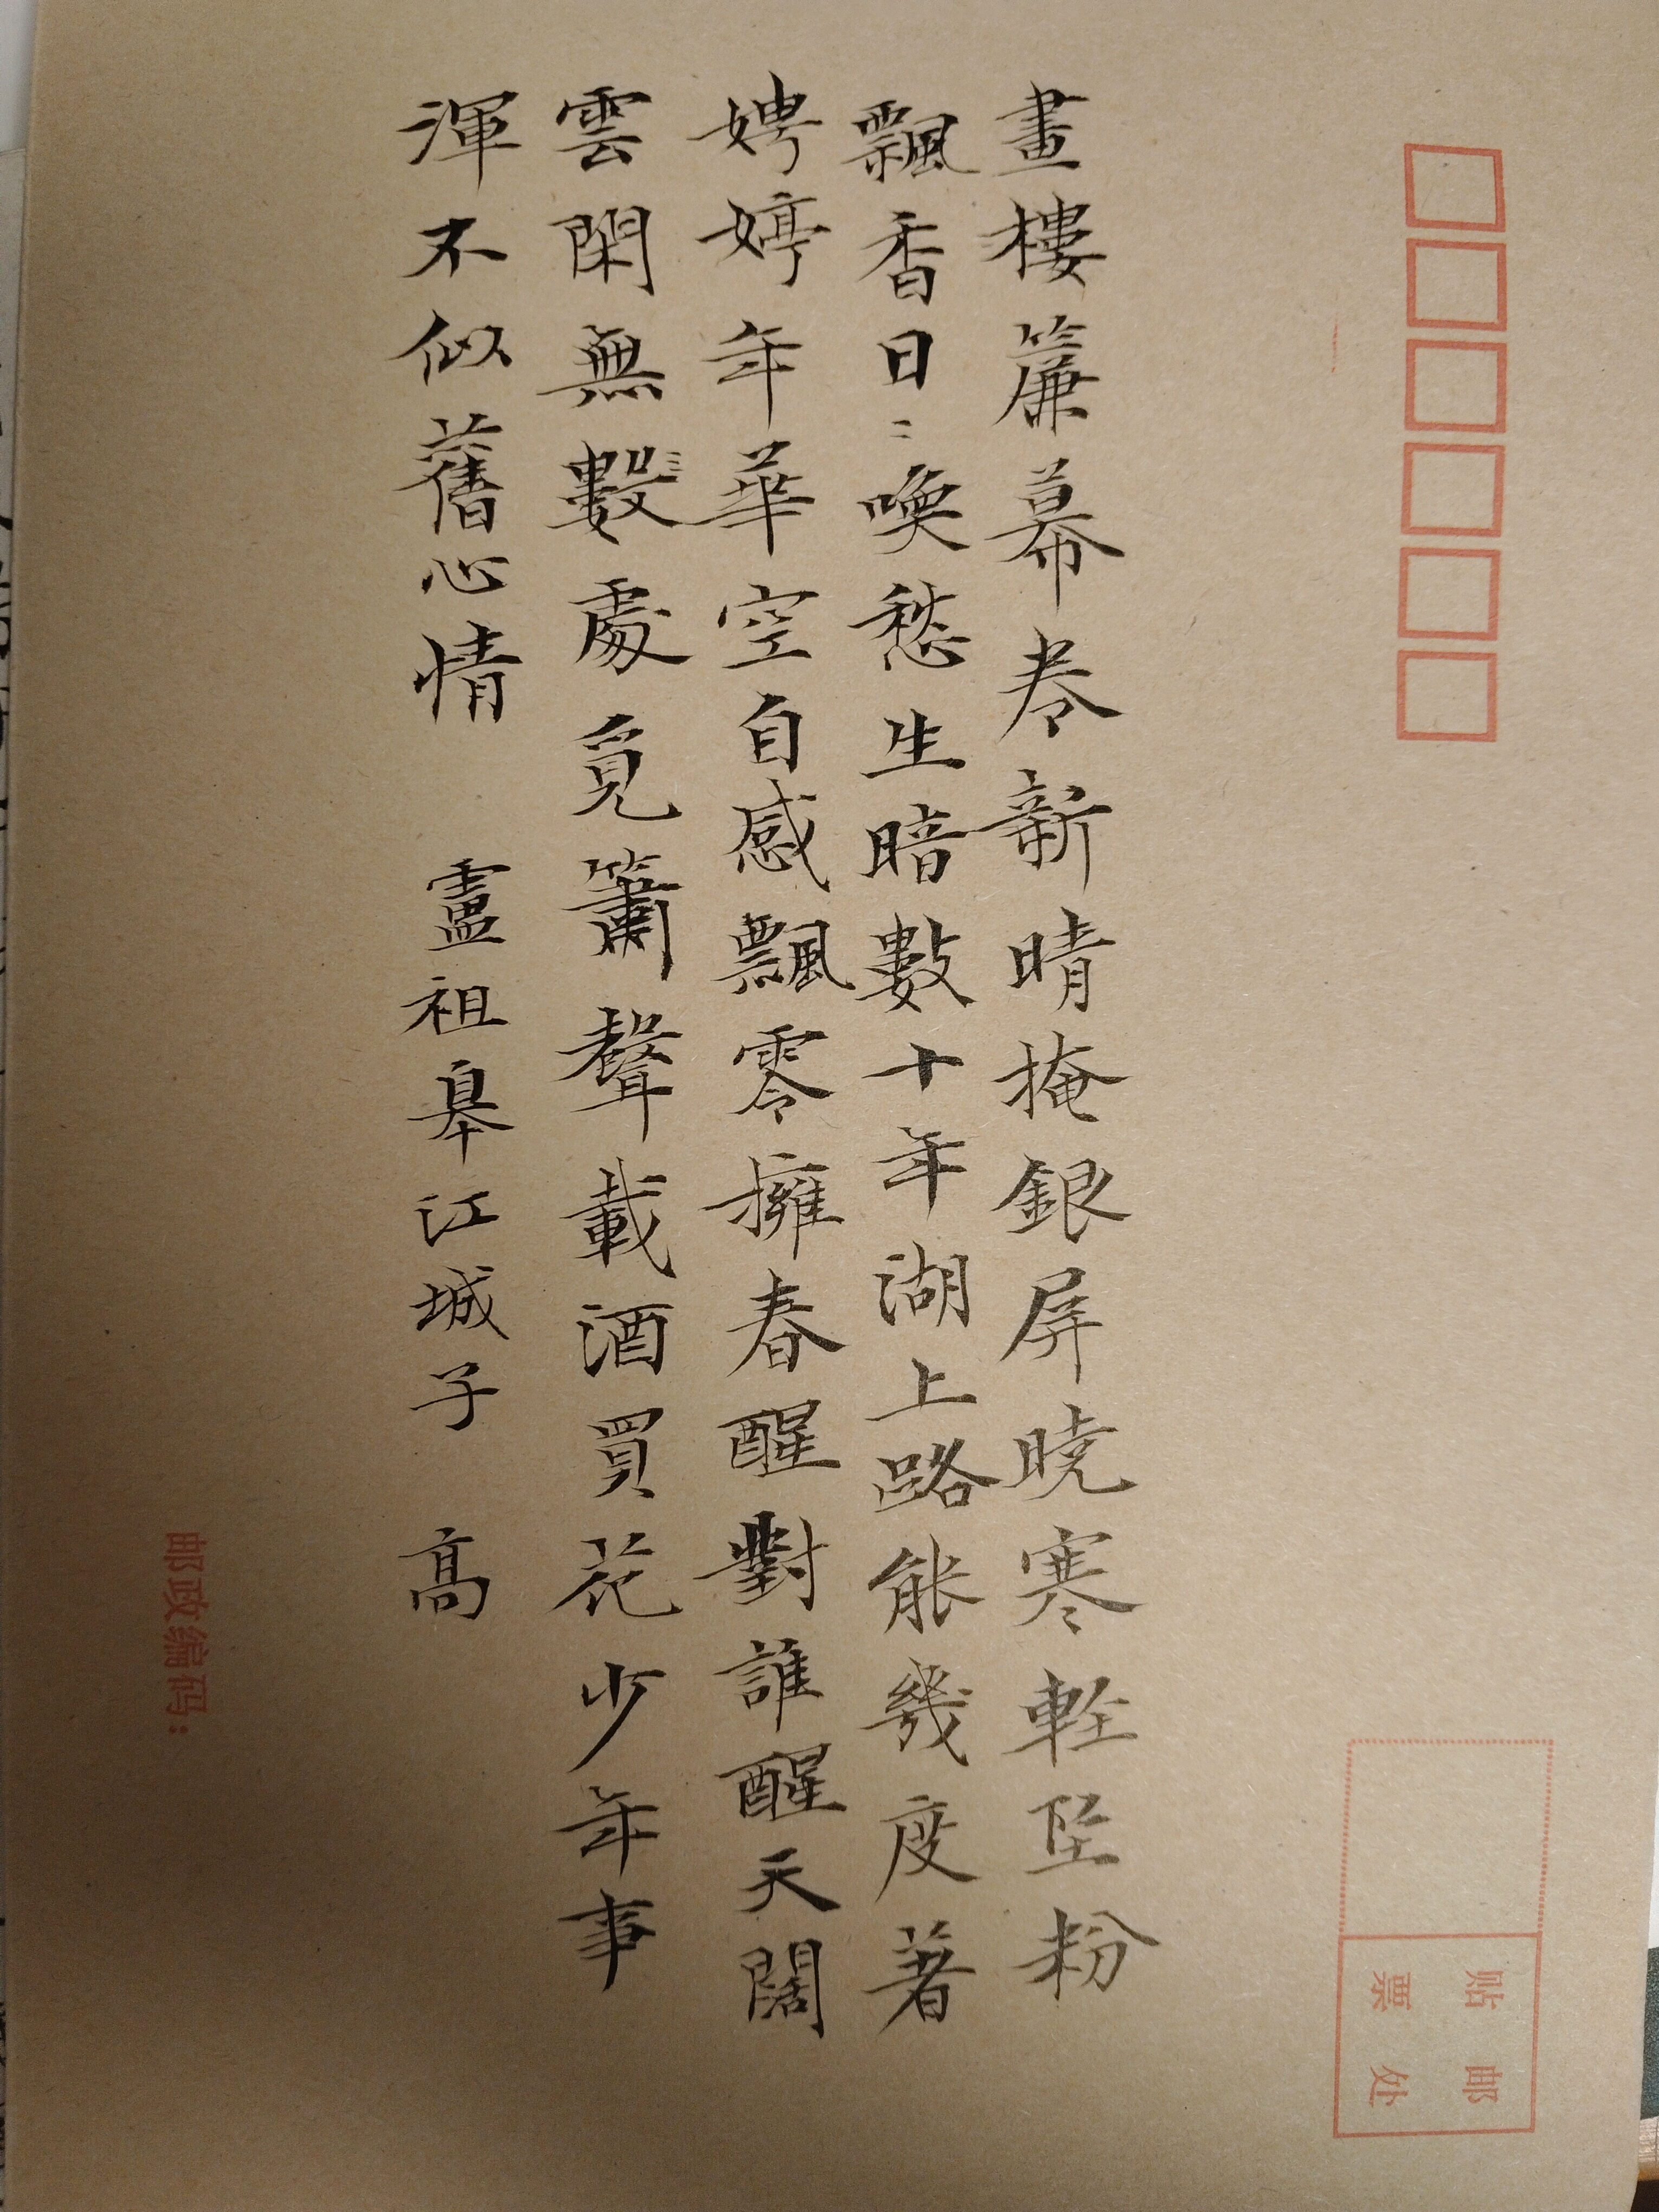 畫樓簾幕捲新晴掩銀屏曉寒輕坠粉
飄香日〻喚愁生暗數十年湖上路能幾度著
娉婷年華空自感飄零擁春醒對誰醒天闊
雲閑無數處覓簫聲載酒買花少年事
渾不似舊心情 盧祖皋江城子 高
贴邮
票处
邮政编码：